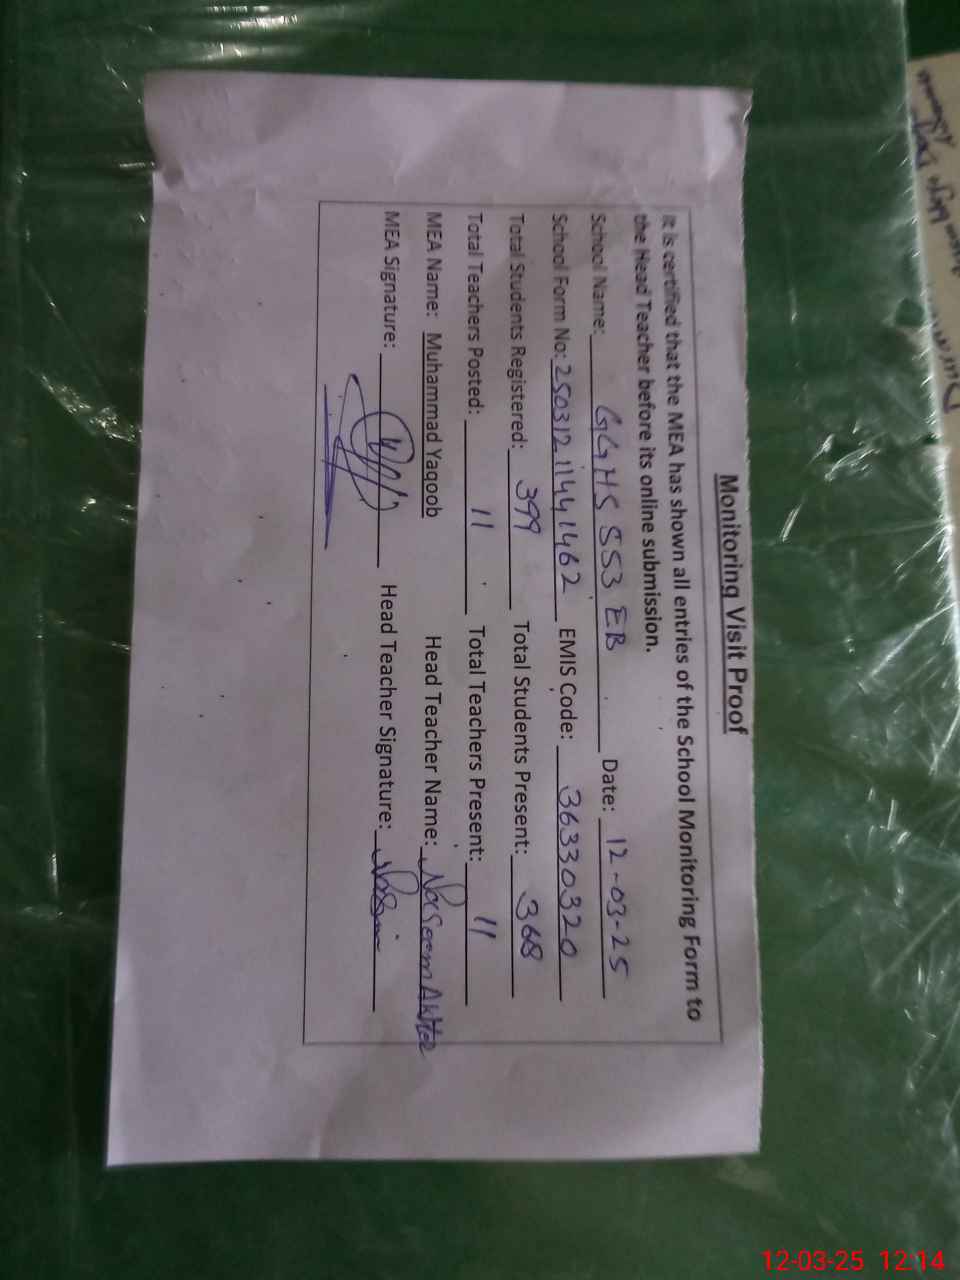 Monitoring Visit Proof
It is certified that the MEA has shown all entries of the School Monitoring Form to
the Head Teacher before its online submission.
School Name: GGHS 553 EB Date: 12-03-25
School Form No: 250312 11441462 EMIS Code: 36330320
Total Students Registered: 399 Total Students Present: 368
Total Teachers Posted: 11 Total Teachers Present: 11
MEA Name: Muhammad Yaqoob Head Teacher Name: Naseem Akhter
MEA Signature: Head Teacher Signature:
12-03-25 12:14